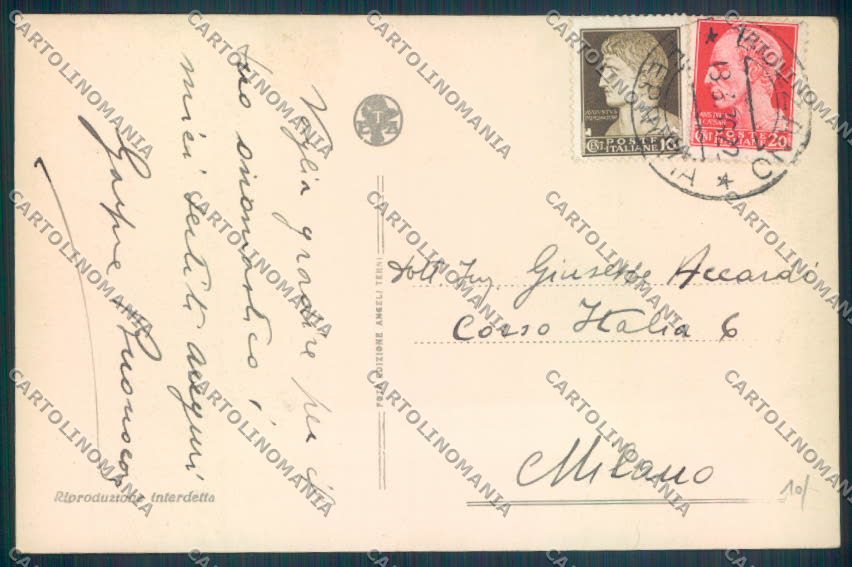 Voglia gradire per il
Suo onomastico i
miei sentiti auguri
Gaspare Buonocore
Dott. Ing. Giuseppe Accardi
Corso Italia 6
Milano
10/-
FOTO EDIZIONE ANGELI TERNI
Riproduzione interdetta
POSTE
ITALIANE
CENT 10
POSTE
ITALIANE
CENT 20
CARTOLINOMANIA